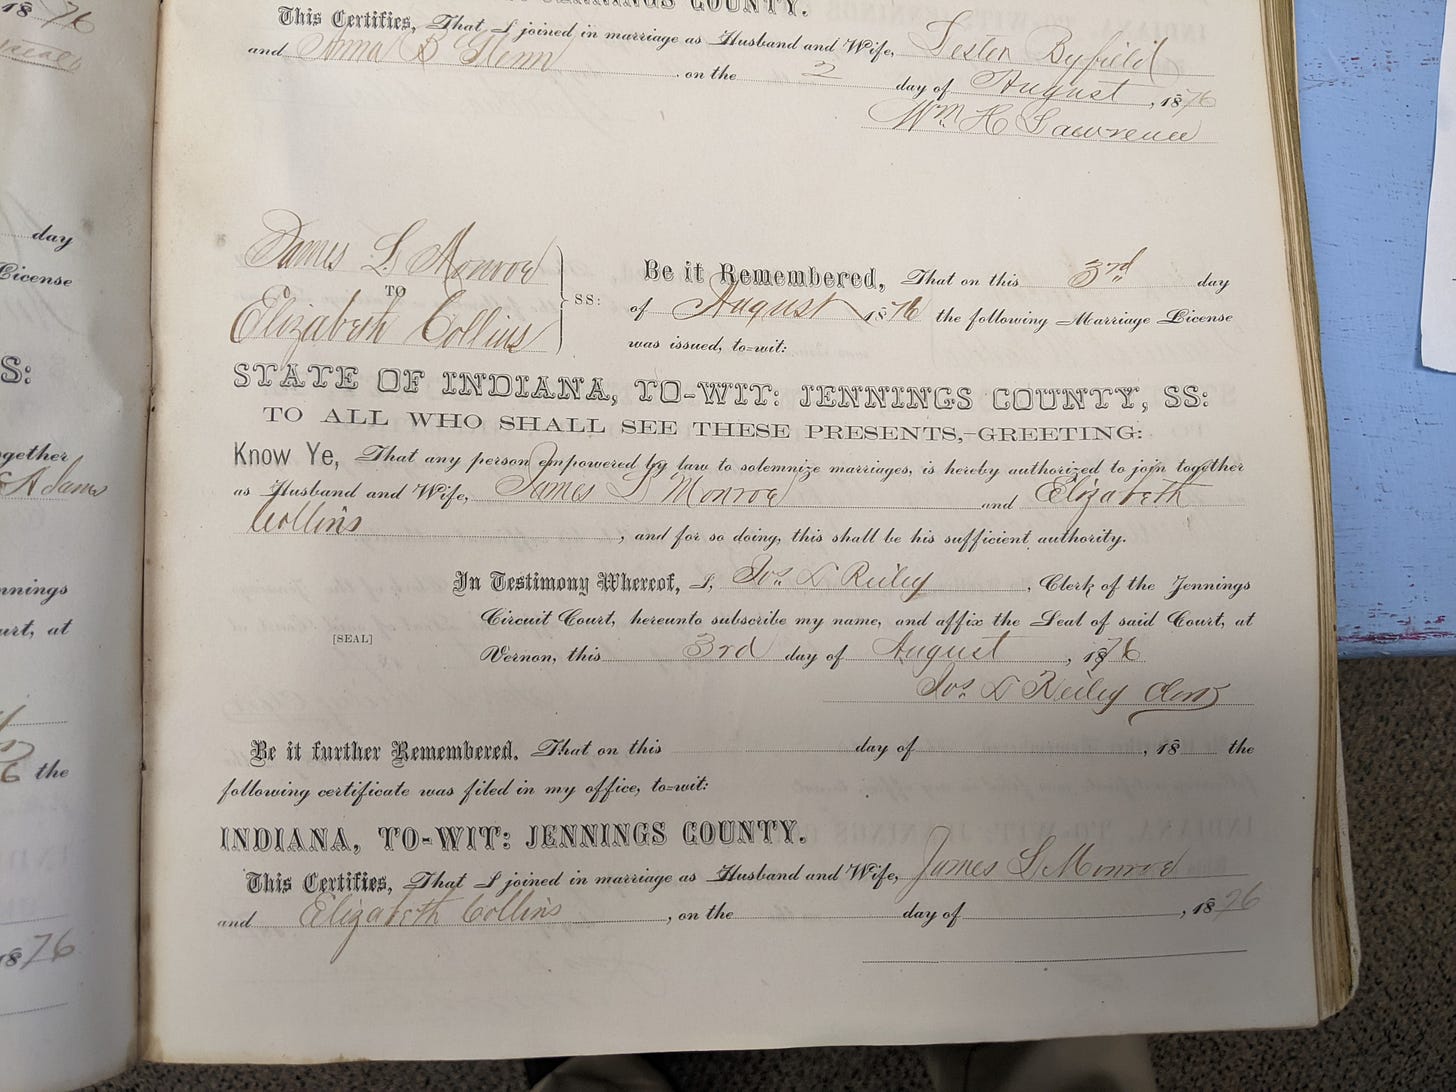 18 76
JENNINGS COUNTY.
This Certifies, That I joined in marriage as Husband and Wife, Lester Byfield
and Anna B Glenn, on the 2 day of August, 1876
Wm H Lawrence
James L. Monroe
TO
Elizabeth Collins
SS:
Be it Remembered, That on this 3rd day
of August 1876 the following Marriage License
was issued, to=wit:
STATE OF INDIANA, TO-WIT: JENNINGS COUNTY, SS:
TO ALL WHO SHALL SEE THESE PRESENTS,-GREETING:
Know Ye, That any person empowered by law to solemnize marriages, is hereby authorized to join together
as Husband and Wife, James L Monroe and Elizabeth
Collins, and for so doing, this shall be his sufficient authority.
In Testimony Whereof, I, Jos. L Reiley, Clerk of the Jennings
Circuit Court, hereunto subscribe my name, and affix the Seal of said Court, at
[SEAL]
Vernon, this 3rd day of August, 1876
Jos. L Reiley Clerk
Be it further Remembered. That on this day of, 18 the
following certificate was filed in my office, to=wit:
INDIANA, TO-WIT: JENNINGS COUNTY.
This Certifies, That I joined in marriage as Husband and Wife, James L Monroe
and Elizabeth Collins, on the day of, 1876
day
License
S:
gether
Adams
nnings
urt, at
6 the
1876